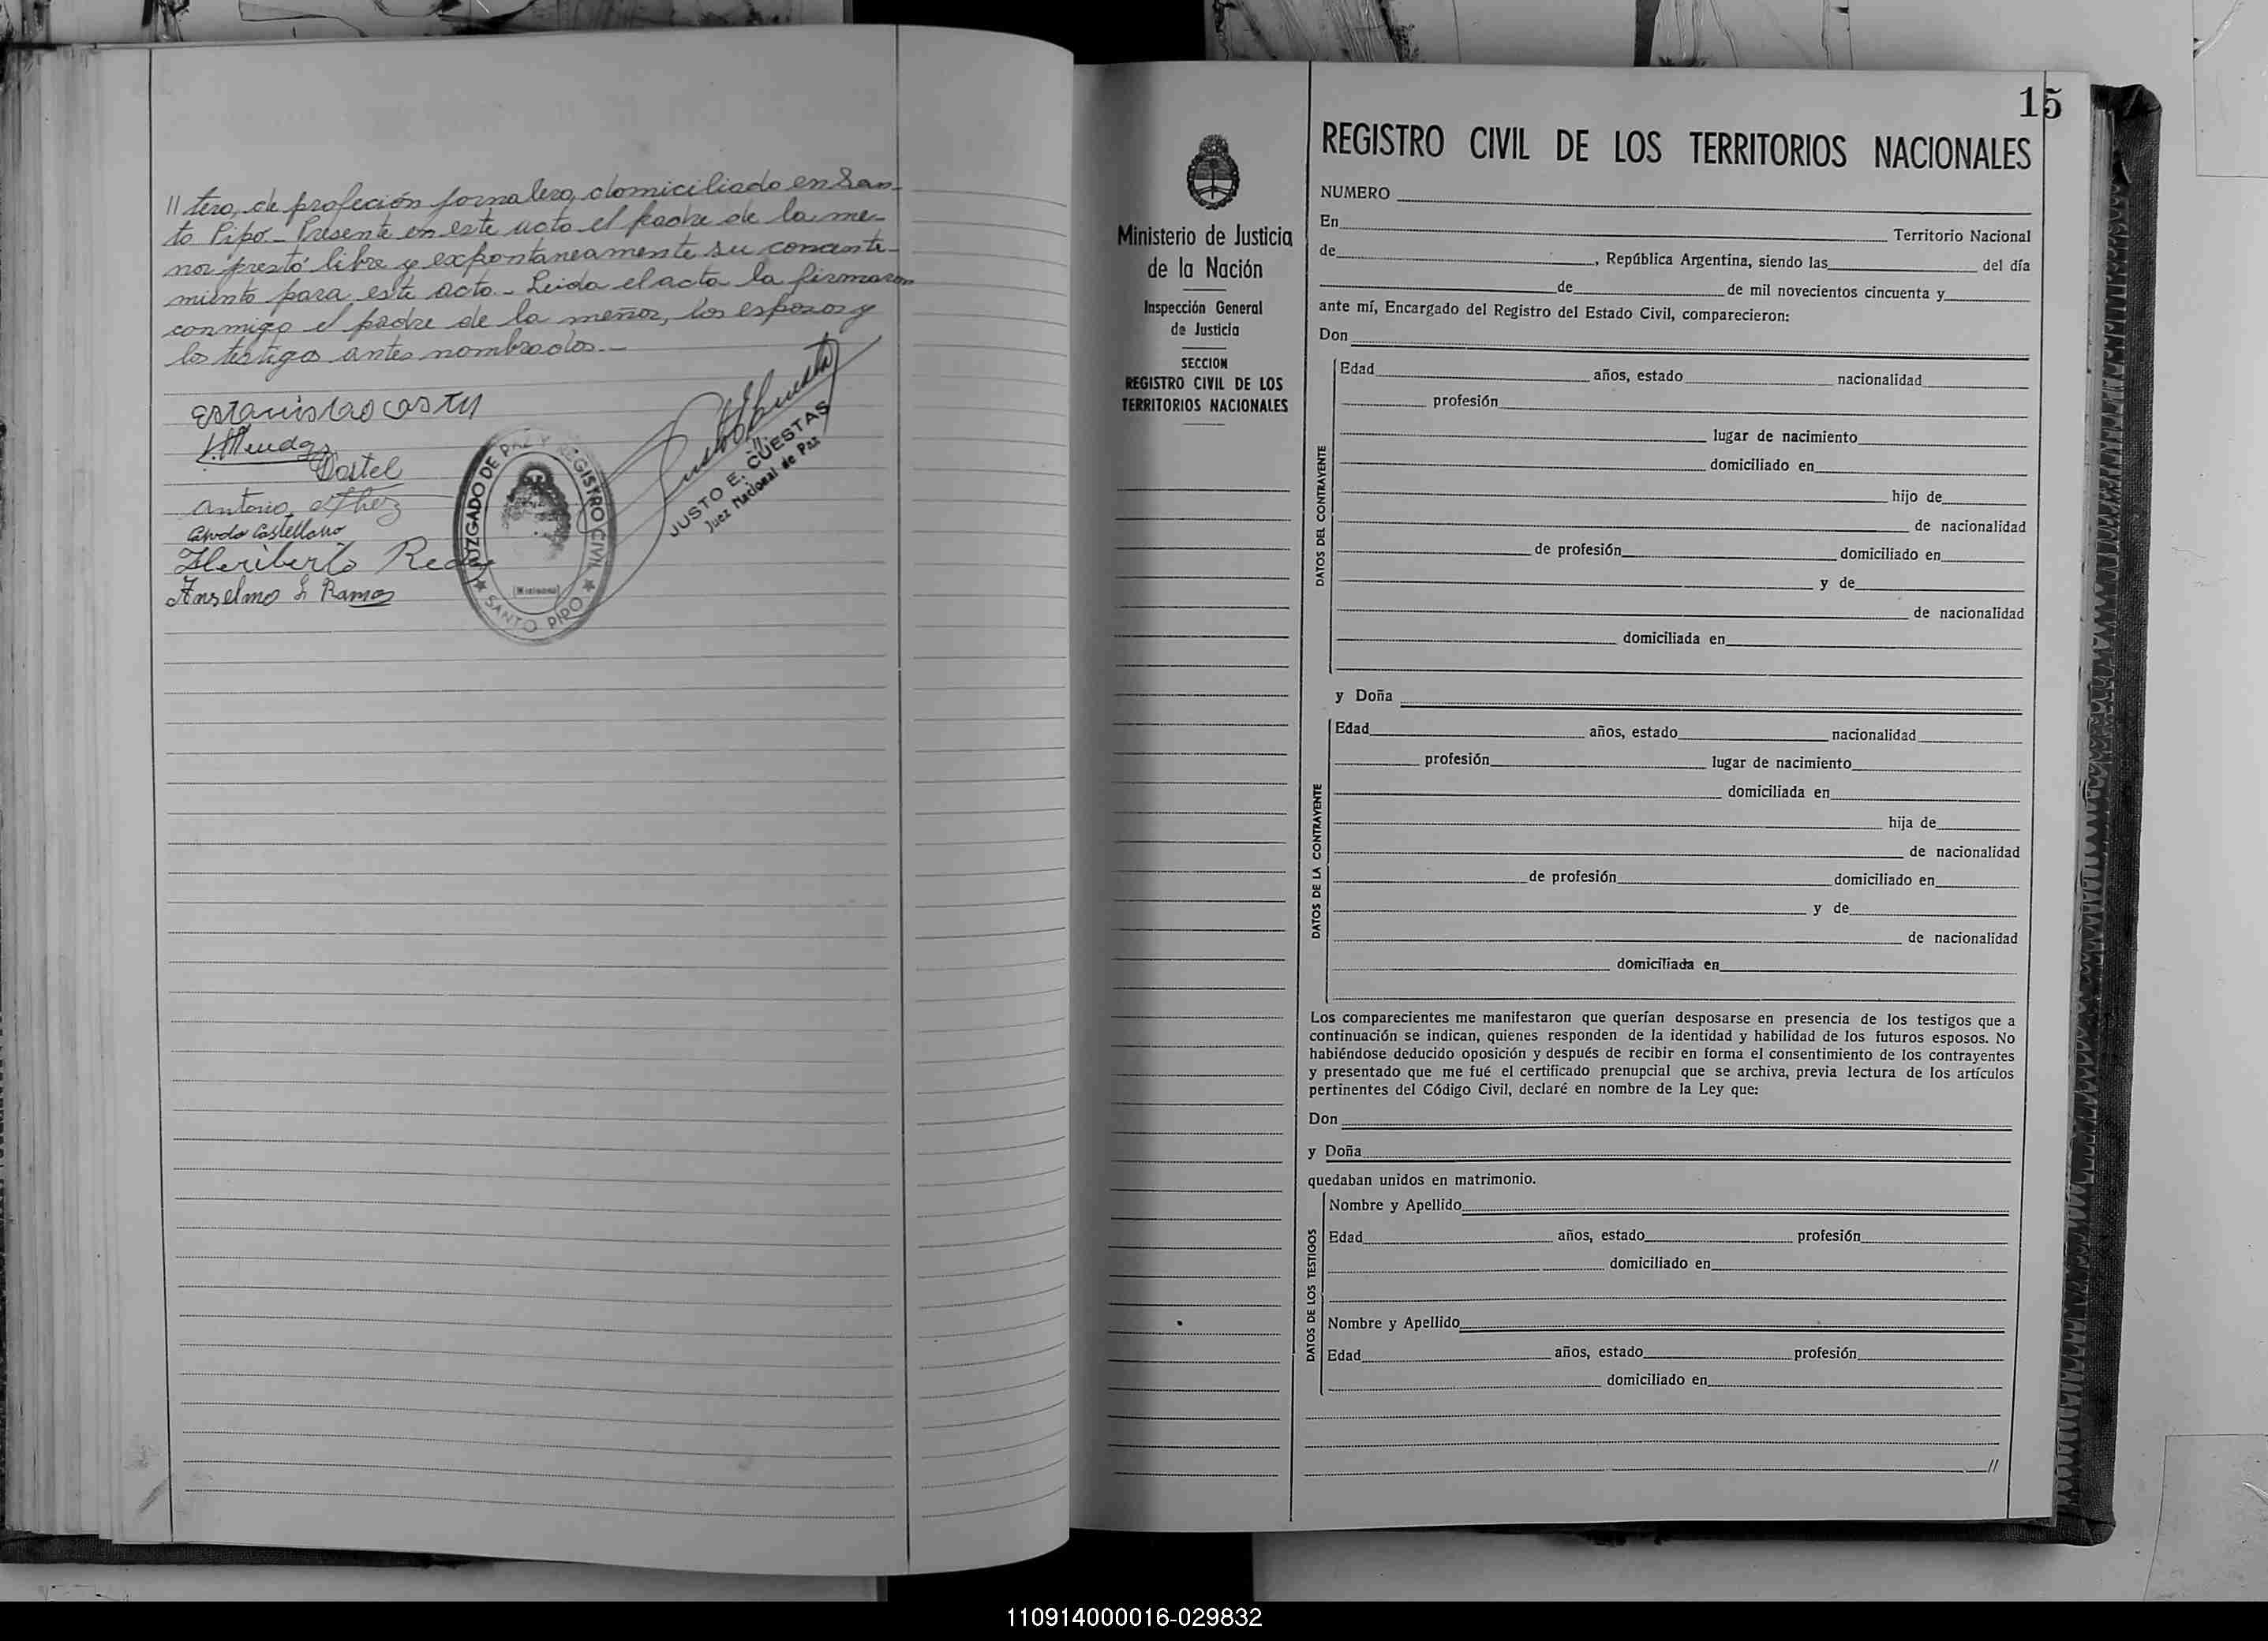 // tero, de profeción jornalero, domiciliado en San-
to Pipó.- Presente en este acto el padre de la me-
nor prestó libre y expontaneamente su concenti-
miento para este acto.- Leida el acta la firmaron
conmigo el padre de la menor, los esposos y
los testigos antes nombrados.-
Castellano
Heriberto
Anselmo L Ramos
JUZGADO DE PAZ Y REGISTRO CIVIL
(Misiones)
SANTO PIPO
JUSTO E. CUESTAS
Juez Nacional de Paz
15
Ministerio de Justicia
de la Nación
Inspección General
de Justicia
SECCION
REGISTRO CIVIL DE LOS
TERRITORIOS NACIONALES
REGISTRO CIVIL DE LOS TERRITORIOS NACIONALES
NUMERO
En Territorio Nacional
de , República Argentina, siendo las del día
de de mil novecientos cincuenta y
ante mí, Encargado del Registro del Estado Civil, comparecieron:
Don
DATOS DEL CONTRAYENTE
Edad años, estado nacionalidad
profesión
lugar de nacimiento
domiciliado en
hijo de
de nacionalidad
de profesión domiciliado en
y de
de nacionalidad
domiciliada en
y Doña
DATOS DE LA CONTRAYENTE
Edad años, estado nacionalidad
profesión lugar de nacimiento
domiciliada en
hija de
de nacionalidad
de profesión domiciliado en
y de
de nacionalidad
domiciliada en
Los comparecientes me manifestaron que querían desposarse en presencia de los testigos que a
continuación se indican, quienes responden de la identidad y habilidad de los futuros esposos. No
habiéndose deducido oposición y después de recibir en forma el consentimiento de los contrayentes
y presentado que me fué el certificado prenupcial que se archiva, previa lectura de los artículos
pertinentes del Código Civil, declaré en nombre de la Ley que:
Don
y Doña
quedaban unidos en matrimonio.
DATOS DE LOS TESTIGOS
Nombre y Apellido
Edad años, estado profesión
domiciliado en
Nombre y Apellido
Edad años, estado profesión
domiciliado en
//
110914000016-029832